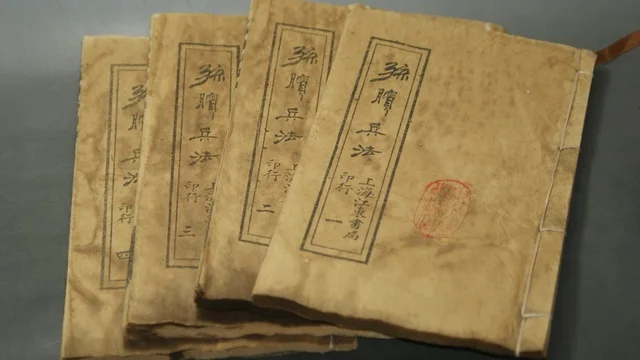 孫臏兵法
上海江東書局
印行
一
孫臏兵法
上海江
印行
二
孫臏兵法
上海
印行
三
孫臏兵法
印行
四